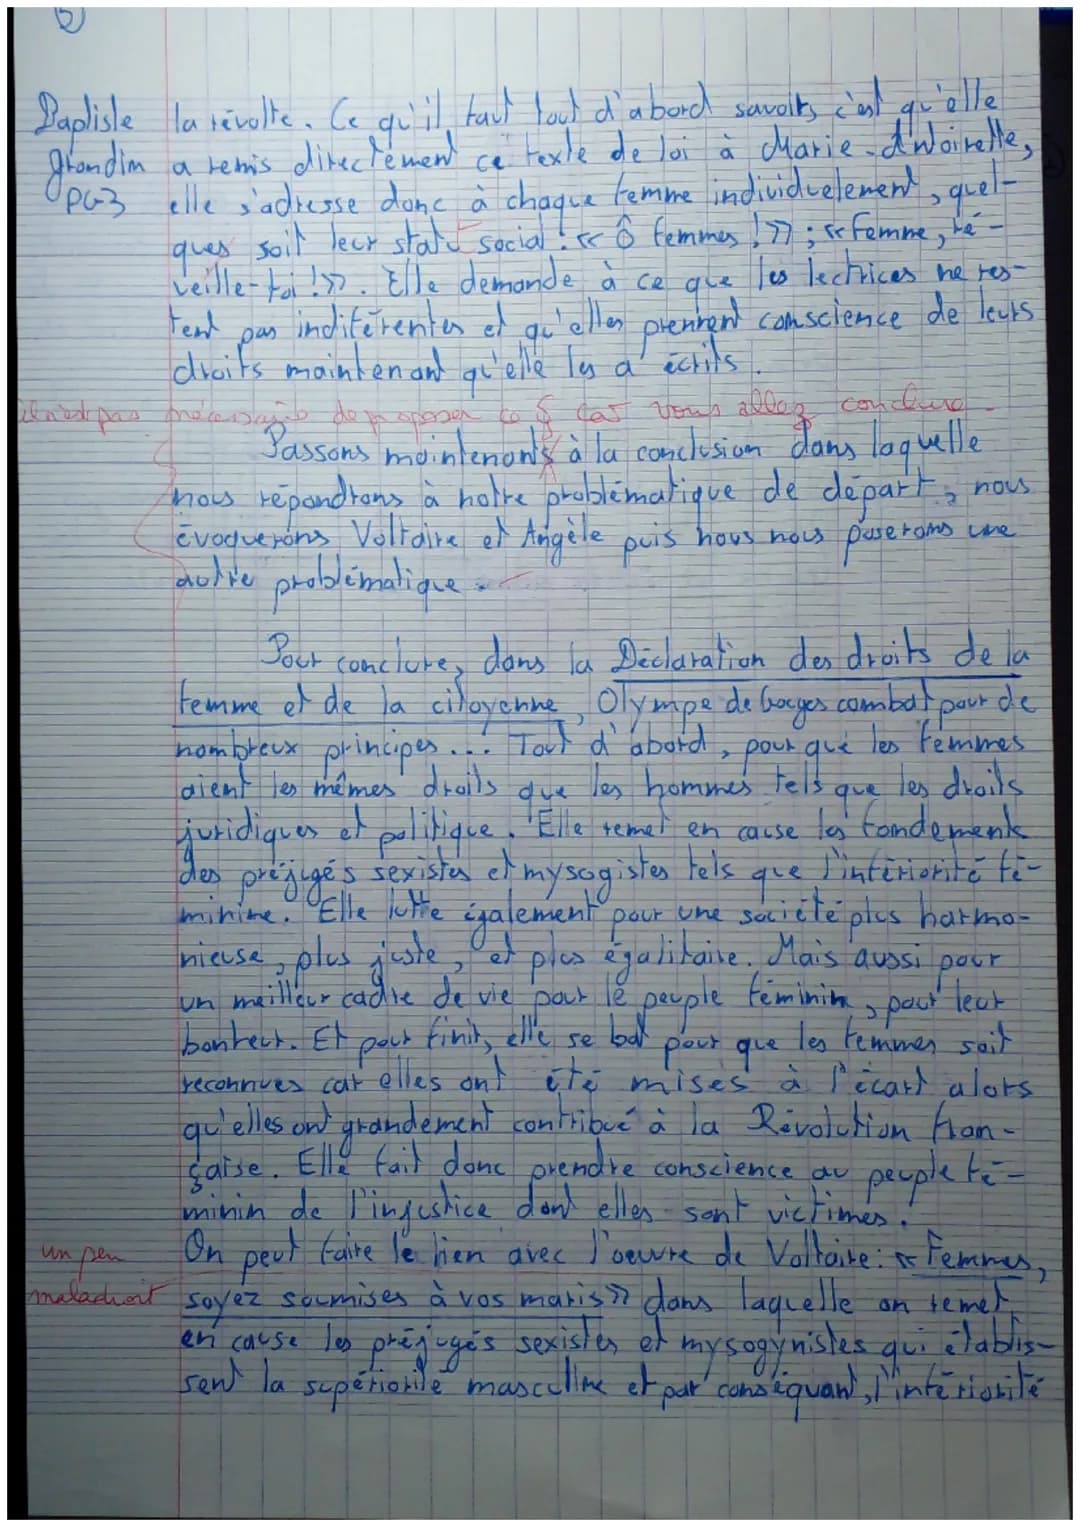 5
Baptiste la révolte. Ce qu'il faut tout d'abord savoirs c'est qu'elle
grondim a remis directement ce texte de loi à Marie-Antoinette,
PG3 elle s'adresse donc à chaque femme individuelement, quel-
ques soit leur statu social : « Ô femmes ! » ; « Femme, ré-
veille-toi ! ». Elle demande à ce que les lectrices ne res-
tent pas indiférentes et qu'elles prennent conscience de leurs
droits maintenant qu'elle les a écrits.
il n'est pas nécessaire de proposer ce § car vous allez conclure.
Passons maintenants à la conclusion dans laquelle
nous répondrons à notre problématique de départ, nous
évoquerons Voltaire et Angèle puis nous nous poserons une
autre problématique.
Pour conclure, dans la Déclaration des droits de la
femme et de la citoyenne, Olympe de Gouges combat pour de
nombreux principes... Tout d'abord, pour que les femmes
aient les mêmes droits que les hommes tels que les droits
juridiques et politique. Elle remet en cause les fondements
des préjugés sexistes et mysogistes tels que l'infériorité fé-
minine. Elle lutte également pour une société plus harmo-
nieuse, plus juste, et plus égalitaire. Mais aussi pour
un meilleur cadre de vie pour le peuple féminin, pour leur
bonheur. Et pour finir, elle se bat pour que les femmes soit
reconnues car elles ont été mises à l'écart alors
qu'elles ont grandement contribué à la Révolution fran-
çaise. Elle fait donc prendre conscience au peuple fé-
minin de l'injustice dont elles sont victimes.
un peu On peut faire le lien avec l'oeuvre de Voltaire : « Femmes,
maladroit soyez soumises à vos maris » dans laquelle on remet
en cause les préjugés sexistes et mysogynistes qui établis-
sent la supériorité masculine et par conséquant, l'infériorité